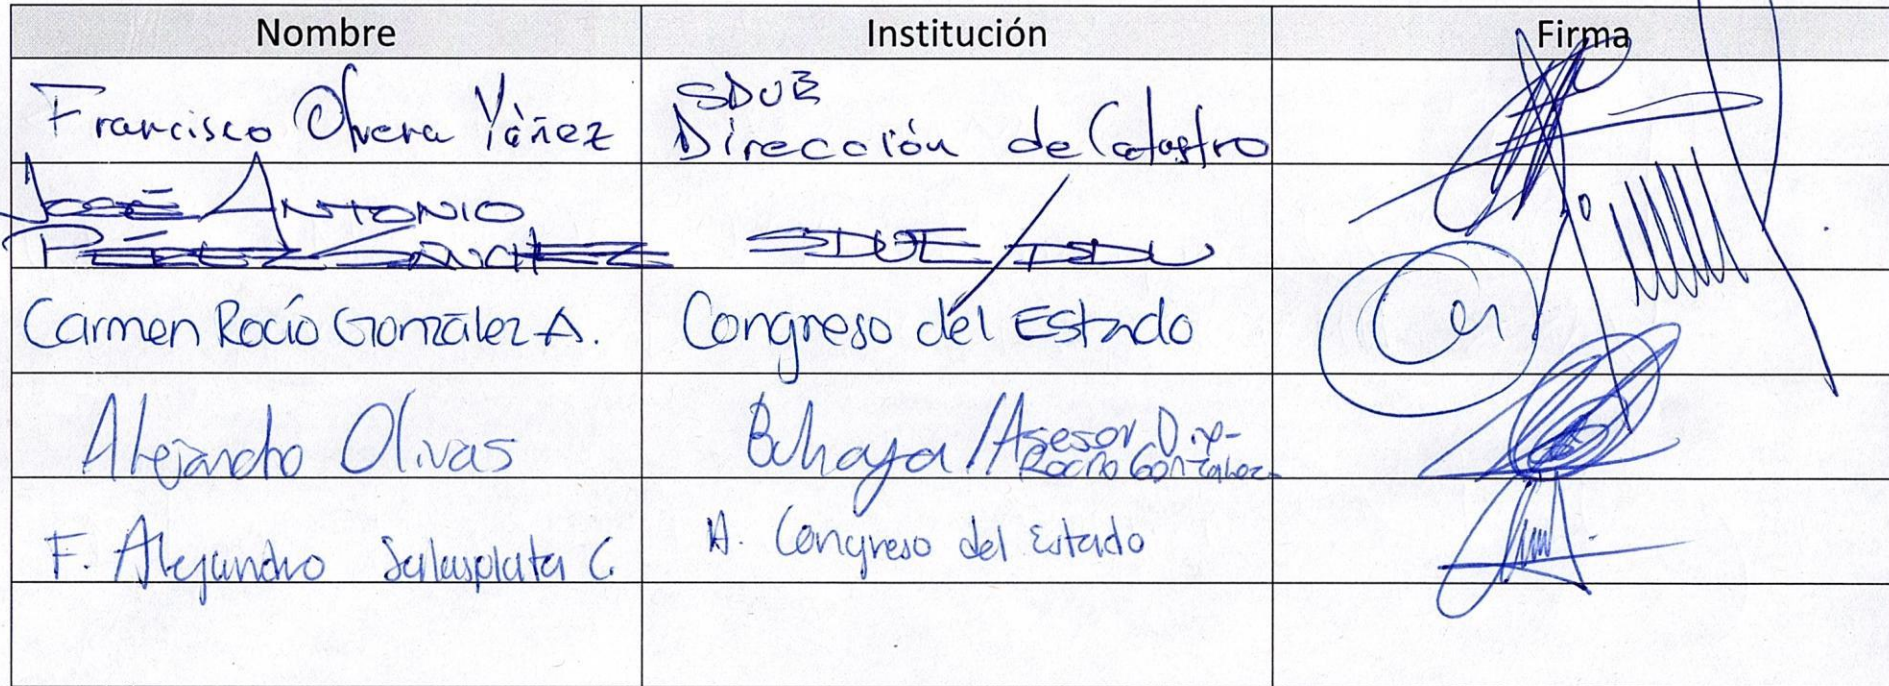 Nombre Institución Firma
Francisco Olvera Yáñez SDUE
Dirección de Catastro
JOSÉ ANTONIO
PÉREZ SANCHEZ SDUE/
Carmen Rocío González A. Congreso del Estado
Alejandro Olivas /Asesor Dip-
Rocío González
F. Alejandro Salasplata C. H. Congreso del Estado